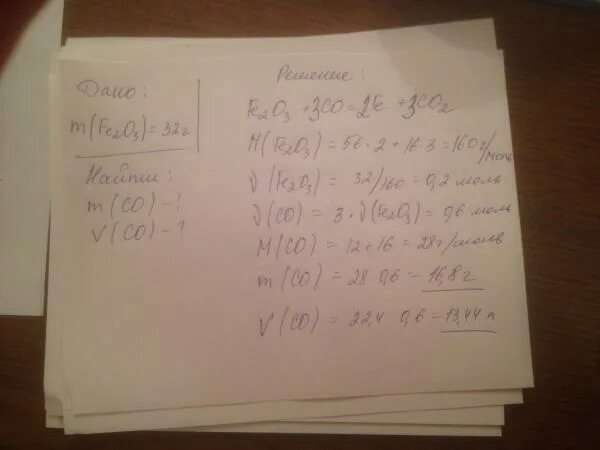 Дано:
m(Fe₂O₃) = 32г
Найти:
m(CO) - ?
V(CO) - ?
Решение:
Fe₂O₃ + 3CO = 2Fe + 3CO₂
M(Fe₂O₃) = 56·2 + 16·3 = 160г/моль
ν(Fe₂O₃) = 32/160 = 0,2 моль
ν(CO) = 3·ν(Fe₂O₃) = 0,6 моль
M(CO) = 12+16 = 28г/моль
m(CO) = 28 0,6 = 16,8г
V(CO) = 22,4 0,6 = 13,44 л